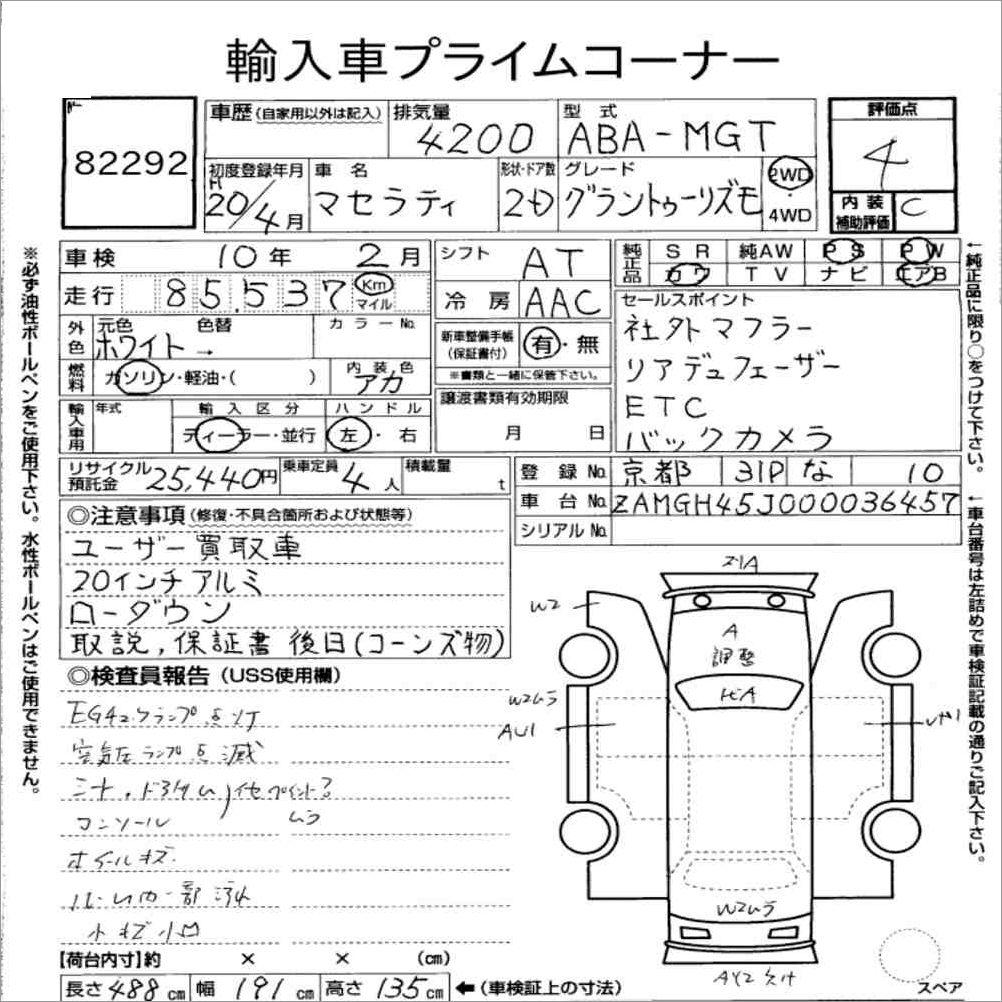 輸入車プライムコーナー
82292
車歴 (自家用以外は記入)
排気量 4200
型式 ABA-MGT
評価点 4
初度登録年月 H20/4月
車名 マセラティ
形状・ドア数 2D
グレード グラントゥーリズモ
2WD・4WD
内装補助評価 C
車検 10年 2月
シフト AT
純正品 SR 純AW PS PW
カワ TV ナビ エアB
走行 85,537 Km マイル
冷房 AAC
セールスポイント
社外マフラー
リアデュフェーザー
ETC
バックカメラ
外色 元色 ホワイト 色替 → カラーNo.
新車整備手帳(保証書付) 有・無
※書類と一緒に保管下さい。
燃料 ガソリン・軽油・( )
内装色 アカ
譲渡書類有効期限 月 日
輸入車用 年式 輸入区分 ディーラー・並行 ハンドル 左・右
リサイクル預託金 25,440円 乗車定員 4人 積載量 t
登録No. 京都 31P な 10
車台No. ZAMGH45J000036457
シリアルNo.
◎注意事項 (修復・不具合箇所および状態等)
ユーザー買取車
20インチアルミ
ローダウン
取説,保証書 後日(コーンズ物)
◎検査員報告 (USS使用欄)
空気圧ランプ点滅
コンソール ムラ
ホイールキズ
小キズ小凹
A
調整
W2
W2ムラ
AU1
W2ムラ
【荷台内寸】約 × × (cm)
長さ 488 cm 幅 191 cm 高さ 135 cm ←(車検証上の寸法)
スペア
※必ず油性ボールペンをご使用下さい。水性ボールペンはご使用できません。
←純正品に限り○をつけて下さい。
←車台番号は左詰めで車検証記載の通りご記入下さい。